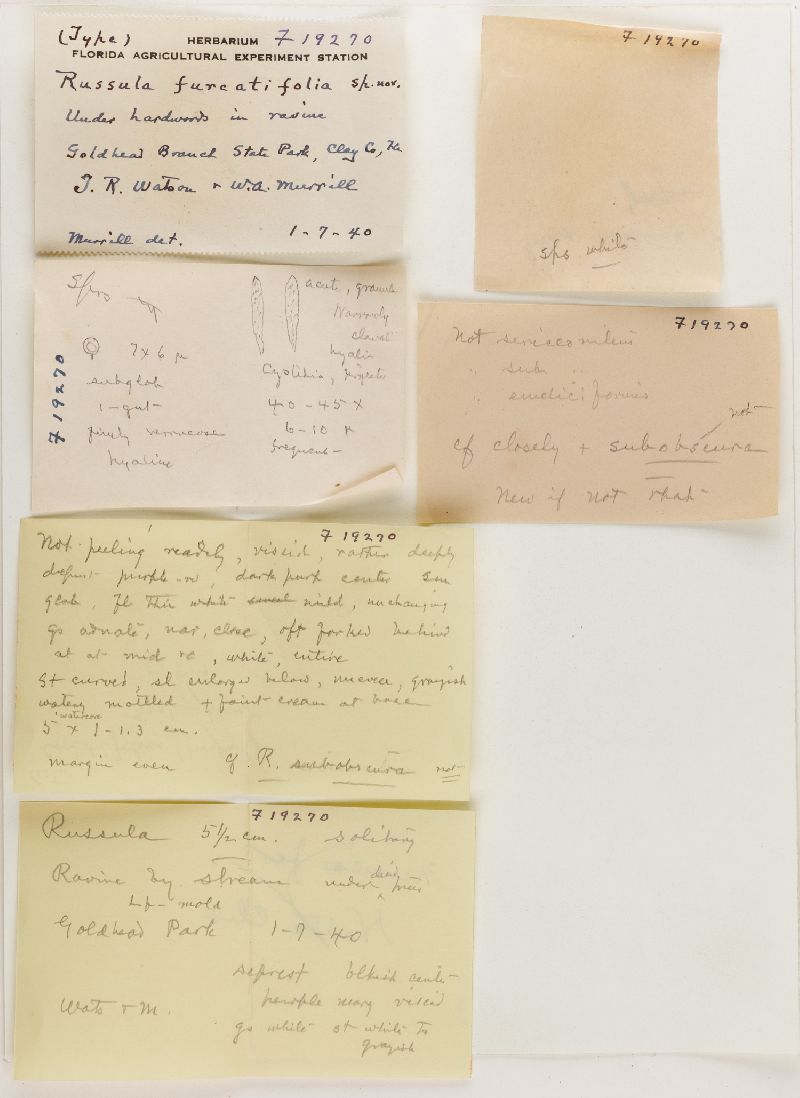 (Type) HERBARIUM F 19270
FLORIDA AGRICULTURAL EXPERIMENT STATION
Russula furcatifolia sp. nov.
Under hardwoods in ravine
Goldhead Branch State Park, Clay Co, Fla
J. R. Watson & W.A. Murrill
Murrill det. 1-7-40
F 19270
sps white
Sps
7 x 6 µ
subglob
1-gut
finely verrucose
hyaline
F 19270
acute, granul
narrowly
claval
hyalin
Cystidia, project
40-45 x
6-10 µ
frequent
F 19270
Not sericeonitens
" sub "
" emeticiformis
not
cf closely + subobscura
New if not that
F 19270
Not peeling readily, viscid, rather deeply
depres purple-rd, dark purp center sm
glab, fl thin white mild, unchanging
gs adnate, nar, close, oft forked behind
at at mid, white, entire
St curved, sl enlarged below, uneven, grayish
watery mottled + faint cream at base
5 x 1-1.3 cm.
margin even cf. R. subobscura not
F 19270
Russula 5 1/2 cm. solitary
Ravine by stream under trees
Lf-mold
Goldhead Park 1-7-40
deprest blkish center
purple marg viscid
Wats & M.
gs white st white to
grayish